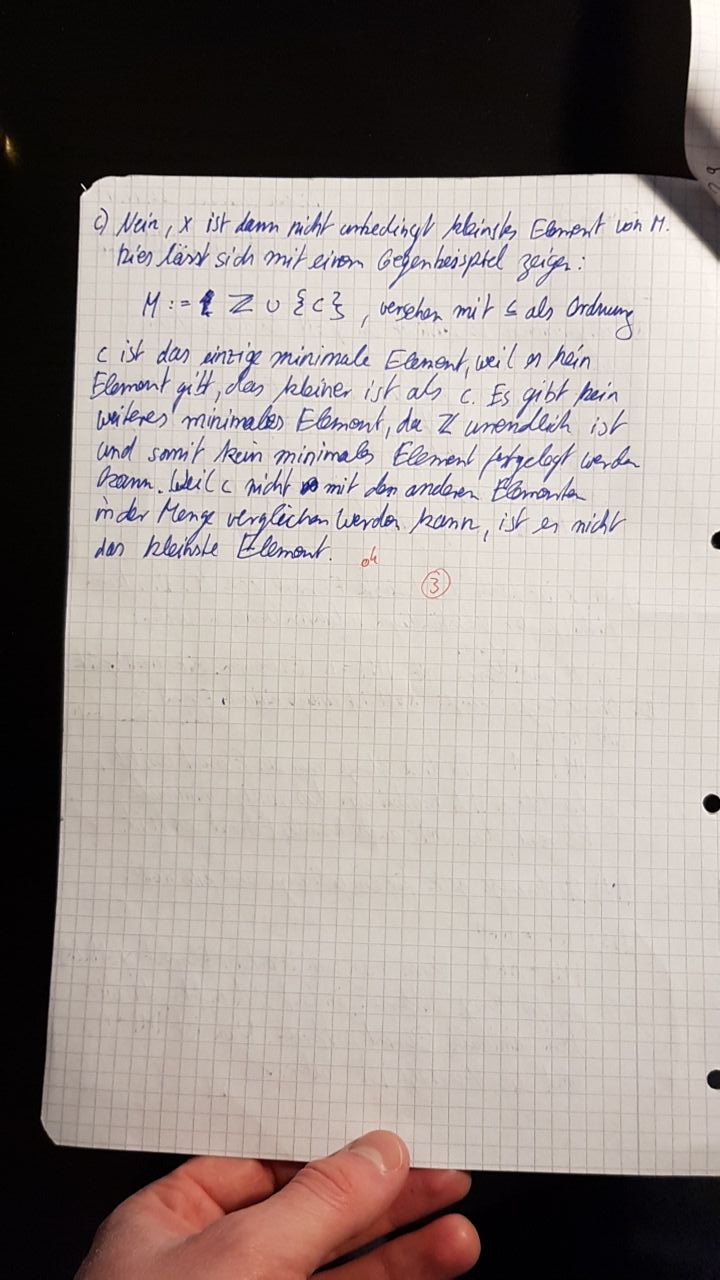 c) Nein, x ist dann nicht unbedingt kleinstes Element von M.
Dies lässt sich mit einem Gegenbeispiel zeigen:
M := ℤ ∪ {c}, versehen mit ≤ als Ordnung
c ist das einzige minimale Element, weil es kein
Element gibt, das kleiner ist als c. Es gibt kein
weiteres minimales Element, da ℤ unendlich ist
und somit kein minimales Element festgelegt werden
kann. Weil c nicht mit den anderen Elementen
in der Menge verglichen werden kann, ist es nicht
das kleinste Element. ok
3